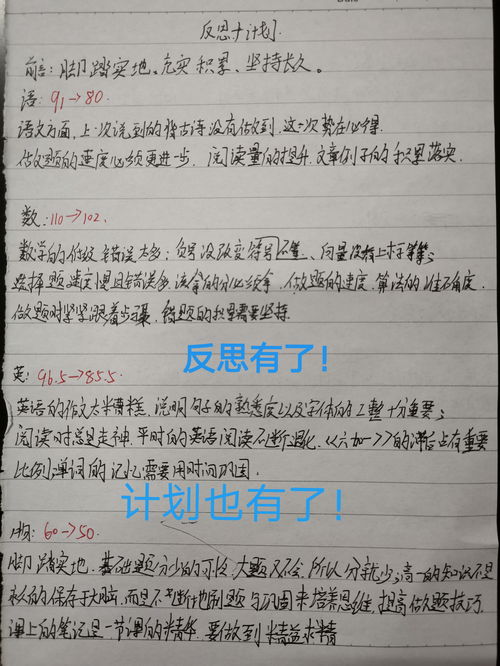 反思+计划.
前言:脚踏实地、充实积累、坚持长久。
语:91→80
语文方面,上一次说到的背古诗没有做到,这一次势在必得.
做题的速度必须更进一步,阅读量的提升.文章例子的积累落实.
数:110→102.
数学的低级错误太多:负号没改变符号不等、向量没有上标等等;
选择题速度慢且错误多,该拿的分必须拿,做题的速度.算法的准确度.
做题时紧紧跟着步骤,错题的积累需要坚持.
反思有了!
英:96.5→85.5.
英语的作文太糟糕,说明句子的熟悉度以及字体的工整十分重要;
阅读时总是走神,平时的英语阅读不断退化,《六加一》的滞后占有重要
比例;单词的记忆需要用时间巩固.
计划也有了!
60→50.
脚踏实地.基础题分少的可怜,大题又不会,所以分就少;高一的知识不是
永久的保存于大脑,而是不断地刷题与巩固来培养思维,提高做题技巧.
课上的笔记是一节课的精华.要做到精益求精